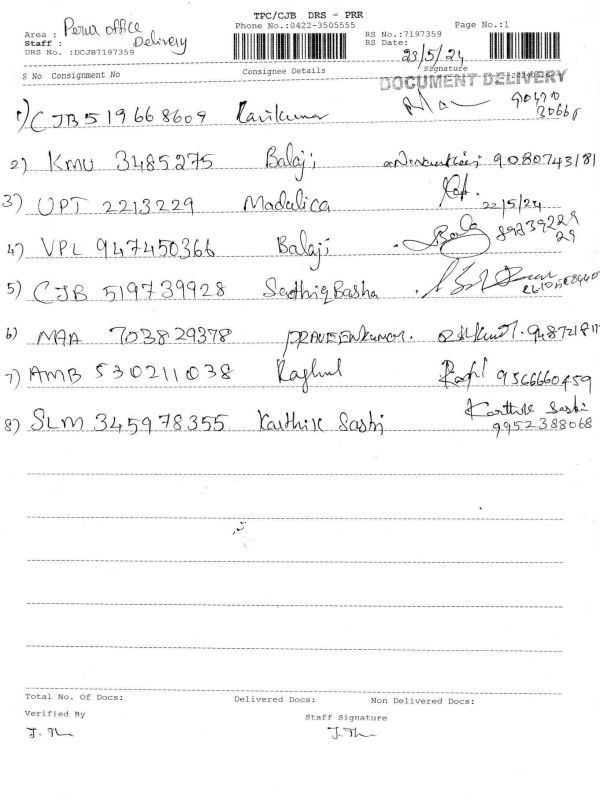 TPC/CJB DRS - PRR
Area : Perur office
Phone No.:0422-3505555
Page No.:1
Staff : Delivery
RS No.:7197359
DRS No. :DCJB7197359
RS Date: 23/5/24
S No Consignment No Consignee Details Signature
DOCUMENT DELIVERY
1) CJB 519668609 Ravikumar
2) KMU 3485275 Balaji 9080743181
3) UPT 2213229 Madalica 22/5/24
4) VPL 947450366 Balaji
5) CJB 519739928 Sadhiq Basha
6) MAA 703829378 PRAVEENKUMAR.
7) AMB 530211038 Raghul 9566660459
8) SLM 345978355 Karthik Sasti Karthik Sasti
9952388068
Total No. Of Docs: Delivered Docs: Non Delivered Docs:
Verified By Staff Signature